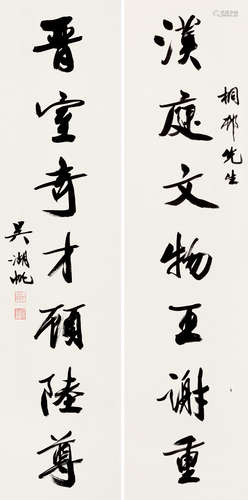 漢庭文物王謝重
桐邨先生
晋室奇才顾陸尊
吴湖帆